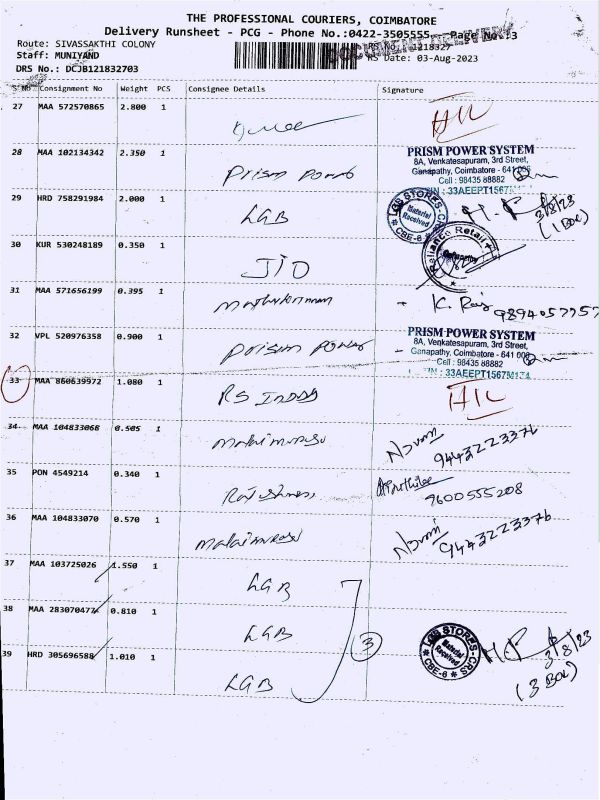 THE PROFESSIONAL COURIERS, COIMBATORE
Delivery Runsheet - PCG - Phone No.:0422-3505555 Page No.:3
Route: SIVASSAKTHI COLONY
Staff: MUNIYAND
RS Date: 03-Aug-2023
DRS No.: DCJB121832703
S No Consignment No Weight PCS Consignee Details Signature
27 MAA 572570865 2.800 1
28 MAA 102134342 2.350 1 Prism Power
PRISM POWER SYSTEM
8A, Venkatesapuram, 3rd Street,
Ganapathy, Coimbatore - 641 006
Cell : 98435 88882
33AEEPT1567
29 HRD 758291984 2.000 1 LGB
LGB STORES-CRS
Material Received
CBE-6
3/8/23
(1 Box)
30 KUR 530248189 0.350 1 JIO
Reliance Retail
31 MAA 571656199 0.395 1
K. Raj
32 VPL 520976358 0.900 1 Prism Power
PRISM POWER SYSTEM
8A, Venkatesapuram, 3rd Street,
Ganapathy, Coimbatore - 641 006
Cell : 98435 88882
33AEEPT1567
33 MAA 860639972 1.080 1
34 MAA 104833068 0.505 1 Malaimurasu
9443223376
35 PON 4549214 0.340 1
9600555208
36 MAA 104833070 0.570 1 Malaimurasu
9443223376
37 MAA 103725026 1.550 1 LGB
38 MAA 283070477 0.810 1 LGB
3
39 HRD 305696588 1.010 1 LGB
LGB STORES-CRS
Material Received
CBE-6
3/8/23
(3 Box)